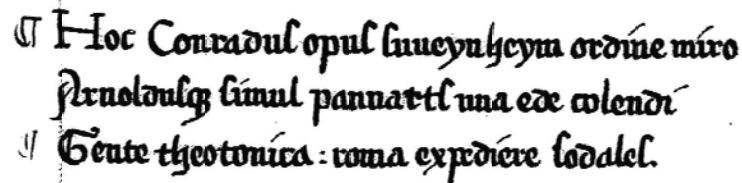 ¶ Hoc Conradus opus suueynheym ordine miro
Arnoldusq simul pannarts una ede colendi
¶ Gente theotonica: roma expediere sodales.